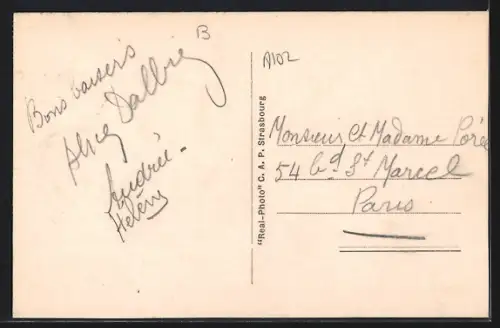 B
Bons baisers
Alice Dalbie
Andrée -
Hélène
"Real-Photo" C. A. P. Strasbourg
A102
Monsieur et Madame Porée
54 bd St Marcel
Paris